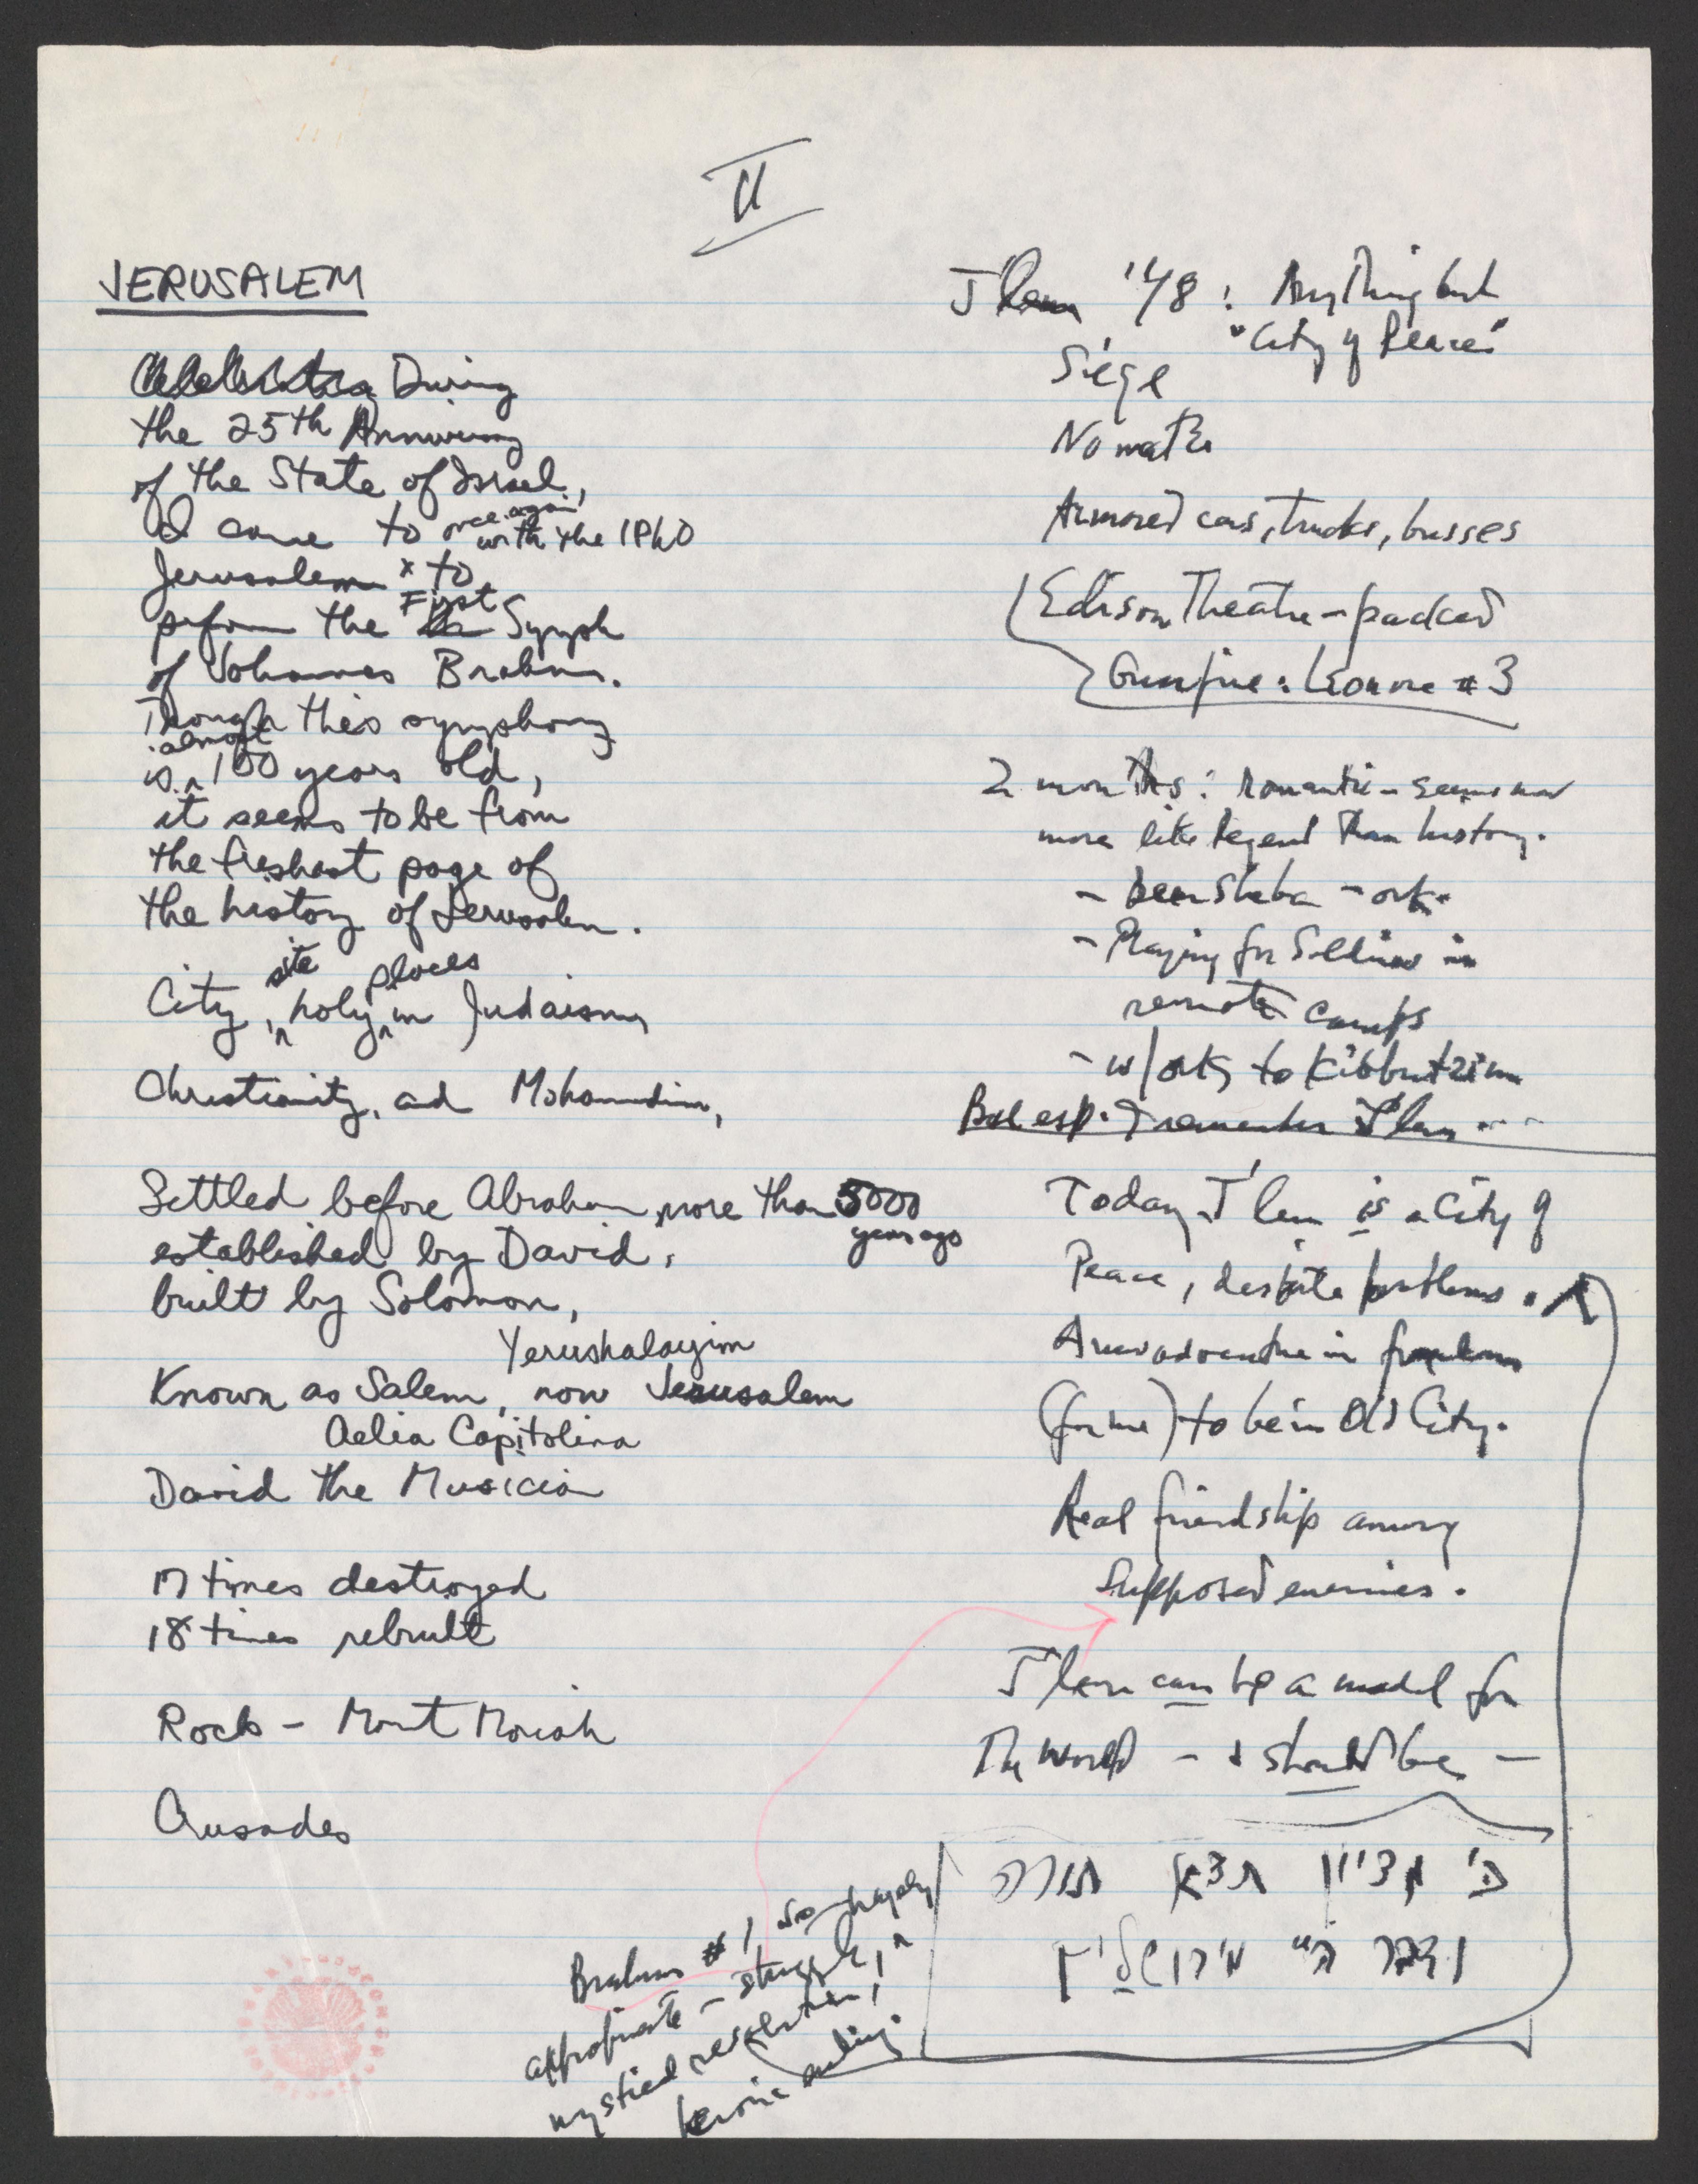 II
JERUSALEM
During
the 25th Anniversary
of the State of Israel,
I come to once again with the IPhO
Jerusalem x to
perform the First Symph
of Johannes Brahms.
Though this symphony
is almost 100 years old,
it seems to be from
the freshest page of
the history of Jerusalem.
City, site holy places in Judaism,
Christianity, and
Settled before Abraham, more than 3000 years ago
established by David,
built by Solomon,
Yerushalayim
Known as Salem, now Jerusalem
Aelia Capitolina
David the Musician
17 times destroyed
18 times rebuilt
Rock – Mount Moriah
Crusades
J'lem '48: Anything but
"City of Peace"
Siege
No water
Armored cars, trucks, busses
Edison Theatre – packed
Gunfire: Leonore #3
2 months: romantic – seems now
more like legend than history.
– Beersheba – ork.
– Playing for Soldiers in
remote camps
– w/ork to Kibbutzim
But esp. I remember J'lem ...
Today J'lem is a City of
Peace, despite problems.
A new adventure in
(for me) to be in Old City.
Real friendship among
supposed enemies.
J'lem can be a model for
the world – & should be –
כי מציון תצא תורה
ודבר ה" מירושלים
Brahms #1 so
appropriate – struggle, tragedy,
mystical resolution,
heroic ending.